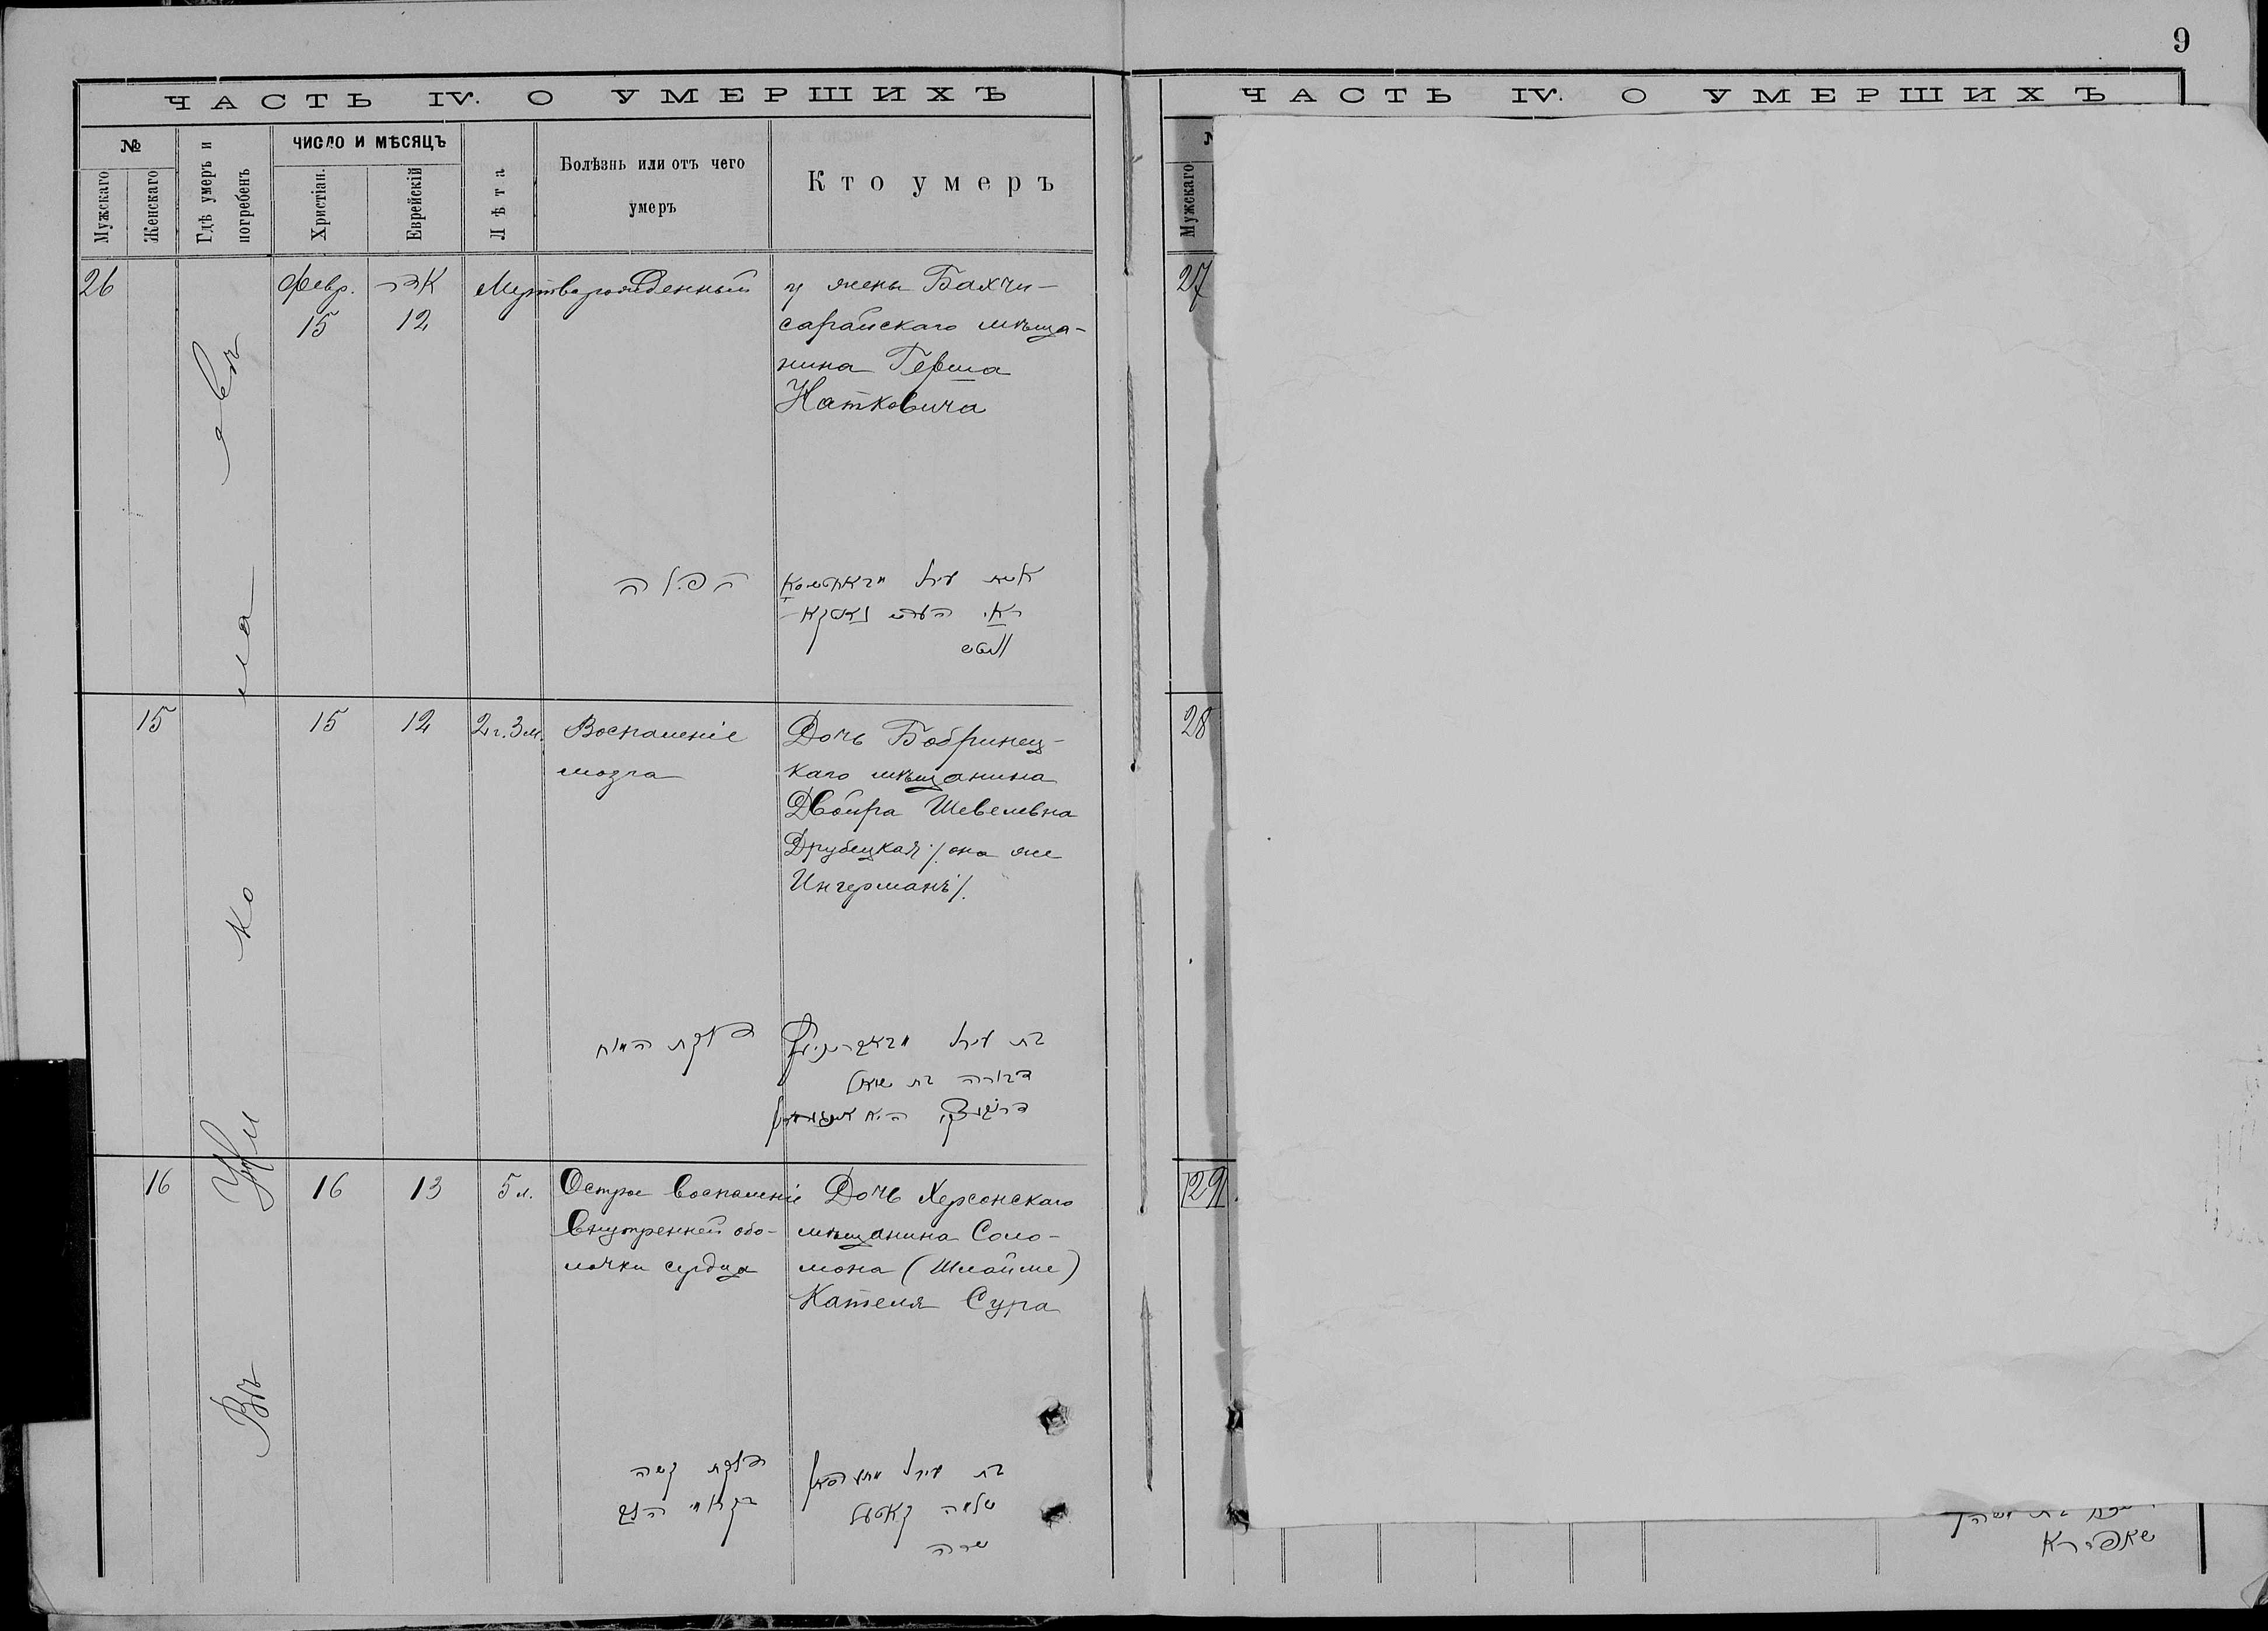 9
ЧАСТЬ IV. О УМЕРШИХЪ
№
Мужскаго
Женскаго
Гдѣ умеръ и погребенъ
ЧИСЛО И МѢСЯЦЪ
Христіан.
Еврейскій
Лѣта
Болѣзнь или отъ чего
умеръ
Кто умеръ
Въ Николаевѣ
26
Февр.
15
אדר
12
Мертворожденный
у жены Бахчи-
сарайскаго мѣща-
нина Герша
Натковича
הפלה
15
15
12
2 г. 3 м.
Воспаленіе
мозга
Дочь Бобринец-
каго мѣщанина
Двойра Шевелевна
Друбецкая /она же
Ингерманъ/.
דלקת המוח
דבורה בת
16
16
13
5 л.
Острое воспаленіе
внутренней обо-
лочки сердца
Дочь Херсонскаго
мѣщанина Соло-
мона (Шлойме)
Кателя Сура
דלקת קשה
שלמה קאטעל
שרה
ЧАСТЬ IV. О УМЕРШИХЪ
Мужскаго
27
28
29